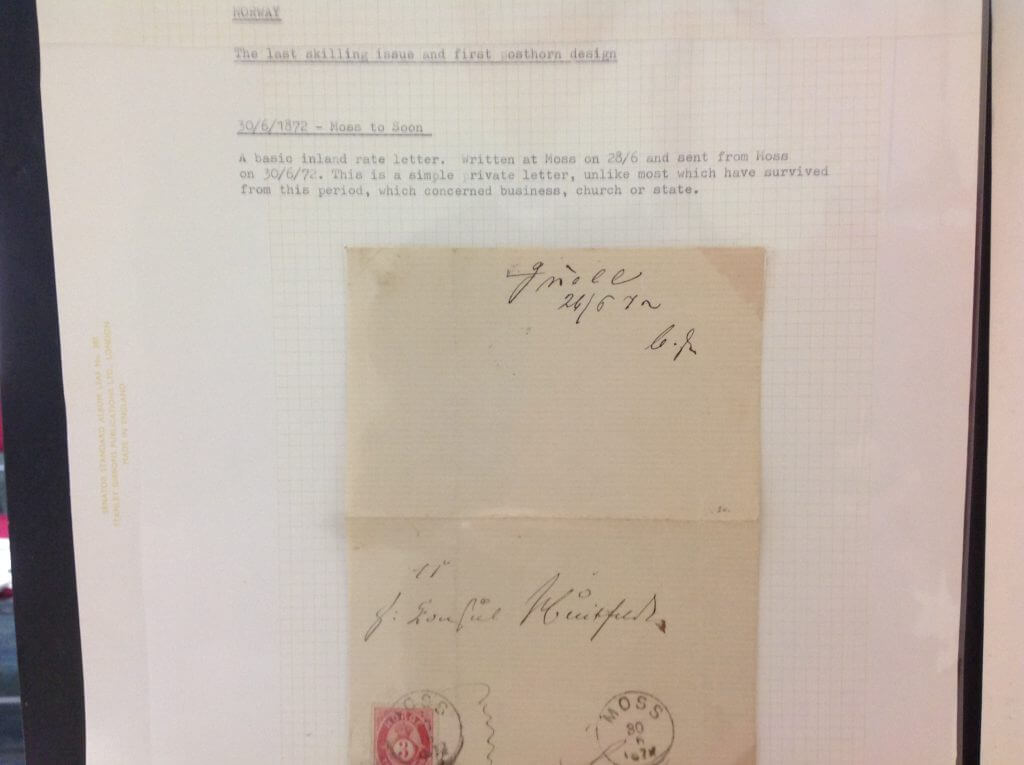 NORWAY
The last skilling issue and first posthorn design
30/6/1872 - Moss to Soon
A basic inland rate letter. Written at Moss on 28/6 and sent from Moss
on 30/6/72. This is a simple private letter, unlike most which have survived
from this period, which concerned business, church or state.
SENATOR STANDARD ALBUM LEAF No.
STANLEY GIBBONS PUBLICATIONS LTD., LONDON
MADE IN ENGLAND
/6 72
Consul Huitfeldt
MOSS
NORGE
3
MOSS
30